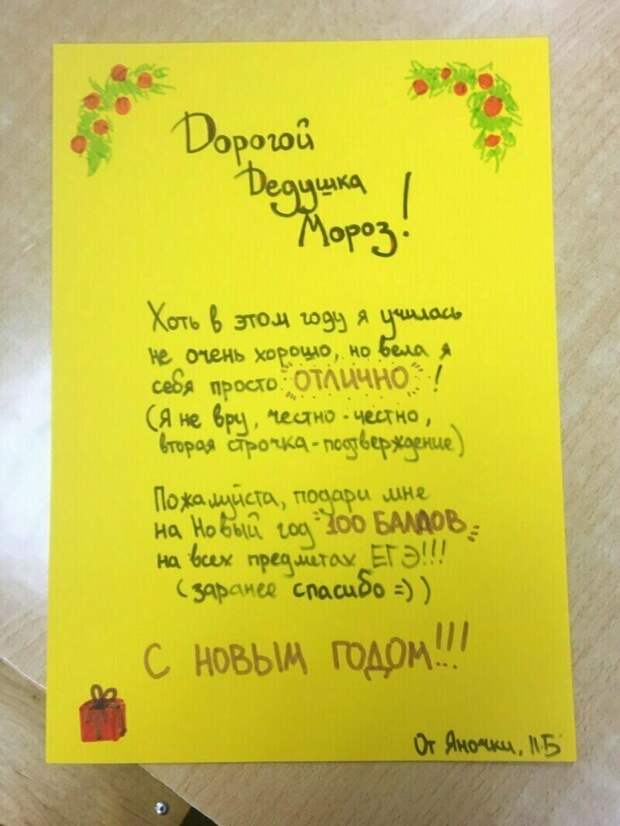 Дорогой
Дедушка
Мороз!
Хоть в этом году я училась
не очень хорошо, но вела я
себя просто ОТЛИЧНО !
(Я не вру, честно-честно,
вторая строчка - подтверждение)
Пожалуйста, подари мне
на Новый год 100 БАЛЛОВ
на всех предметах ЕГЭ!!!
(заранее спасибо =))
С НОВЫМ ГОДОМ!!!
От Яночки, 11Б